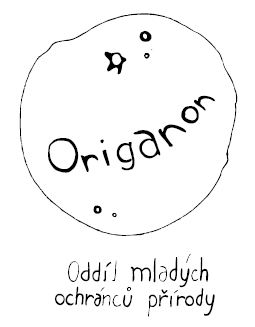 Origanon
Oddíl mladých
ochránců přírody